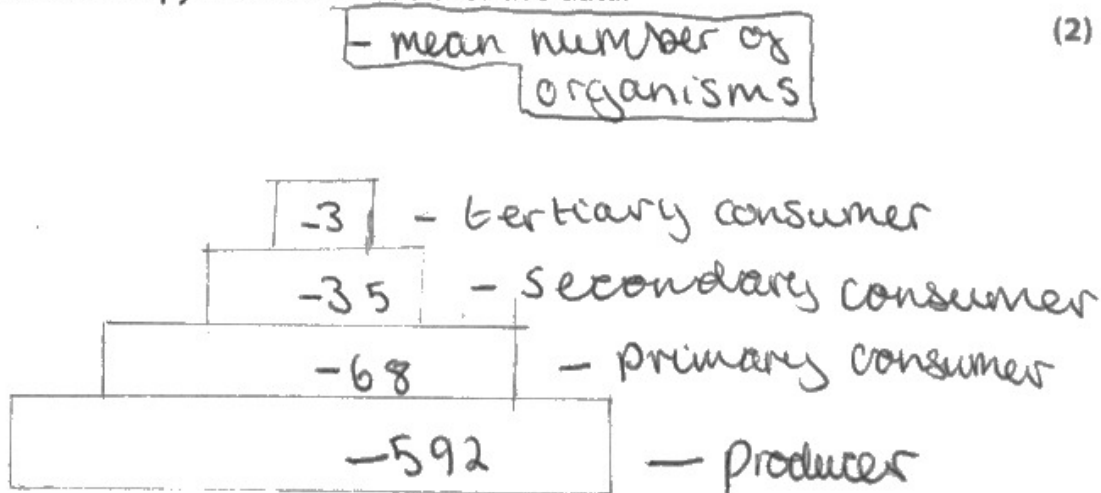 - mean number of
(2)
organisms
-3 - tertiary consumer
-35 - secondary consumer
-68 - primary consumer
-592 - producer